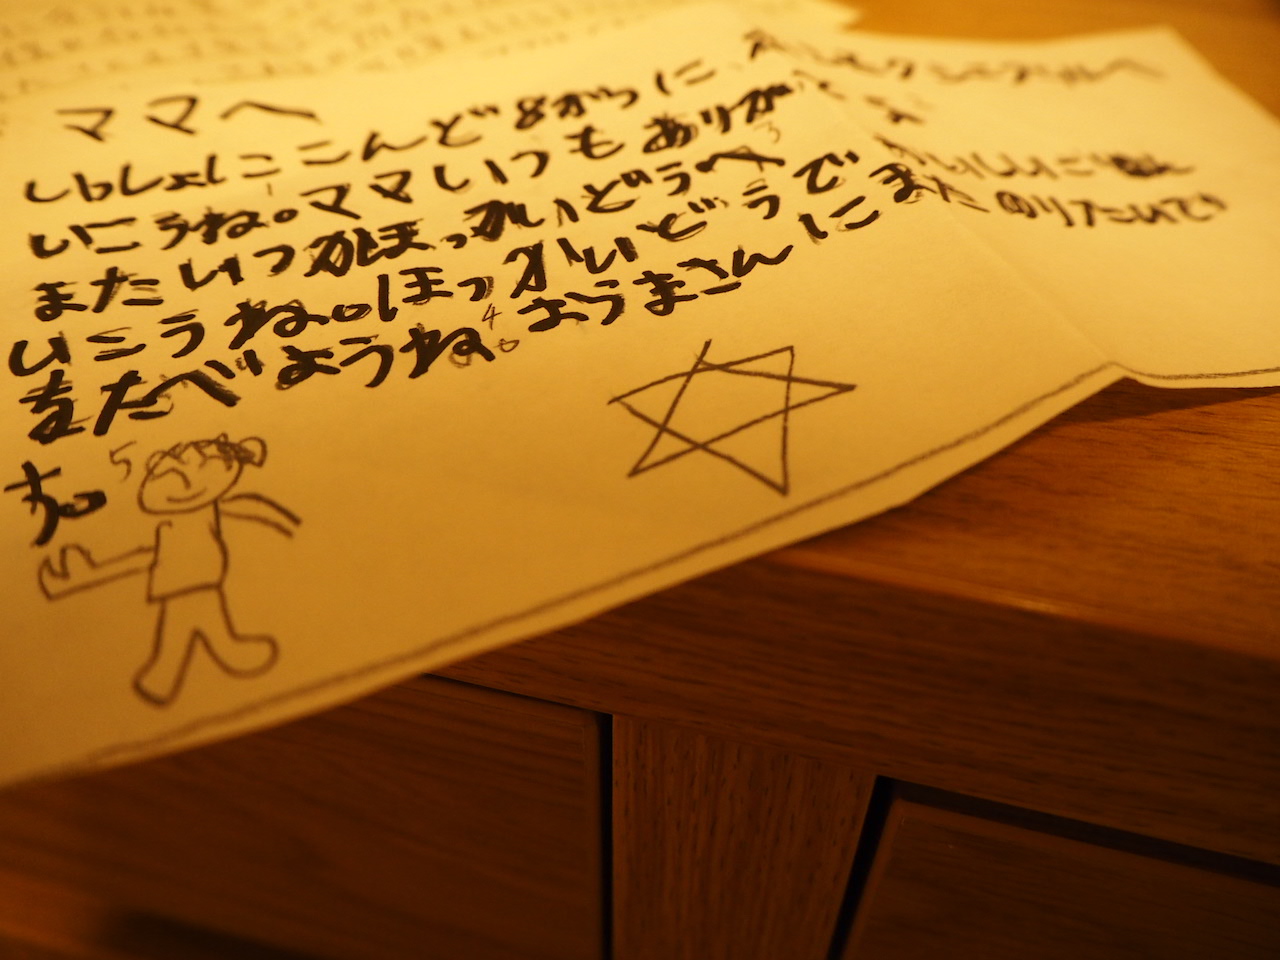 ママへ
いっしょにこんど8がつに
いこうね。ママいつもありがと
またいつかほっかいどうへ
いこうね。ほっかいどうで いしいご
をたべようね。おうまさんにまたのりたいで
す。